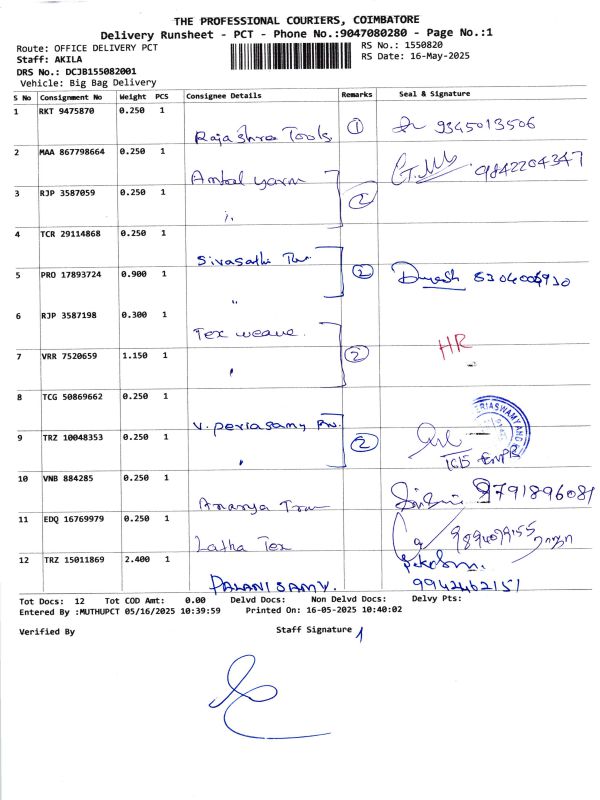 THE PROFESSIONAL COURIERS, COIMBATORE
Delivery Runsheet - PCT - Phone No.:9047080280 - Page No.:1
Route: OFFICE DELIVERY PCT
RS No.: 1550820
Staff: AKILA
RS Date: 16-May-2025
DRS No.: DCJB155082001
Vehicle: Big Bag Delivery
S No Consignment No Weight PCS Consignee Details Remarks Seal & Signature
1 RKT 9475870 0.250 1
Raja Shree Tools 1 9345013506
2 MAA 867798664 0.250 1
Ambal yarn 9842204347
3 RJP 3587059 0.250 1
2
4 TCR 29114868 0.250 1
Sivasathi
5 PRO 17893724 0.900 1
2
6 RJP 3587198 0.300 1
Tex weave.
HR
7 VRR 7520659 1.150 1
2
8 TCG 50869662 0.250 1
V. Periasamy
9 TRZ 10048353 0.250 1
2
10 VNB 884285 0.250 1
Ananya 9791896081
11 EDQ 16769979 0.250 1
Latha Tex
12 TRZ 15011869 2.400 1
PALANISAMY. 9942462151
Tot Docs: 12 Tot COD Amt: 0.00 Delvd Docs: Non Delvd Docs: Delvy Pts:
Entered By :MUTHUPCT 05/16/2025 10:39:59 Printed On: 16-05-2025 10:40:02
Verified By Staff Signature